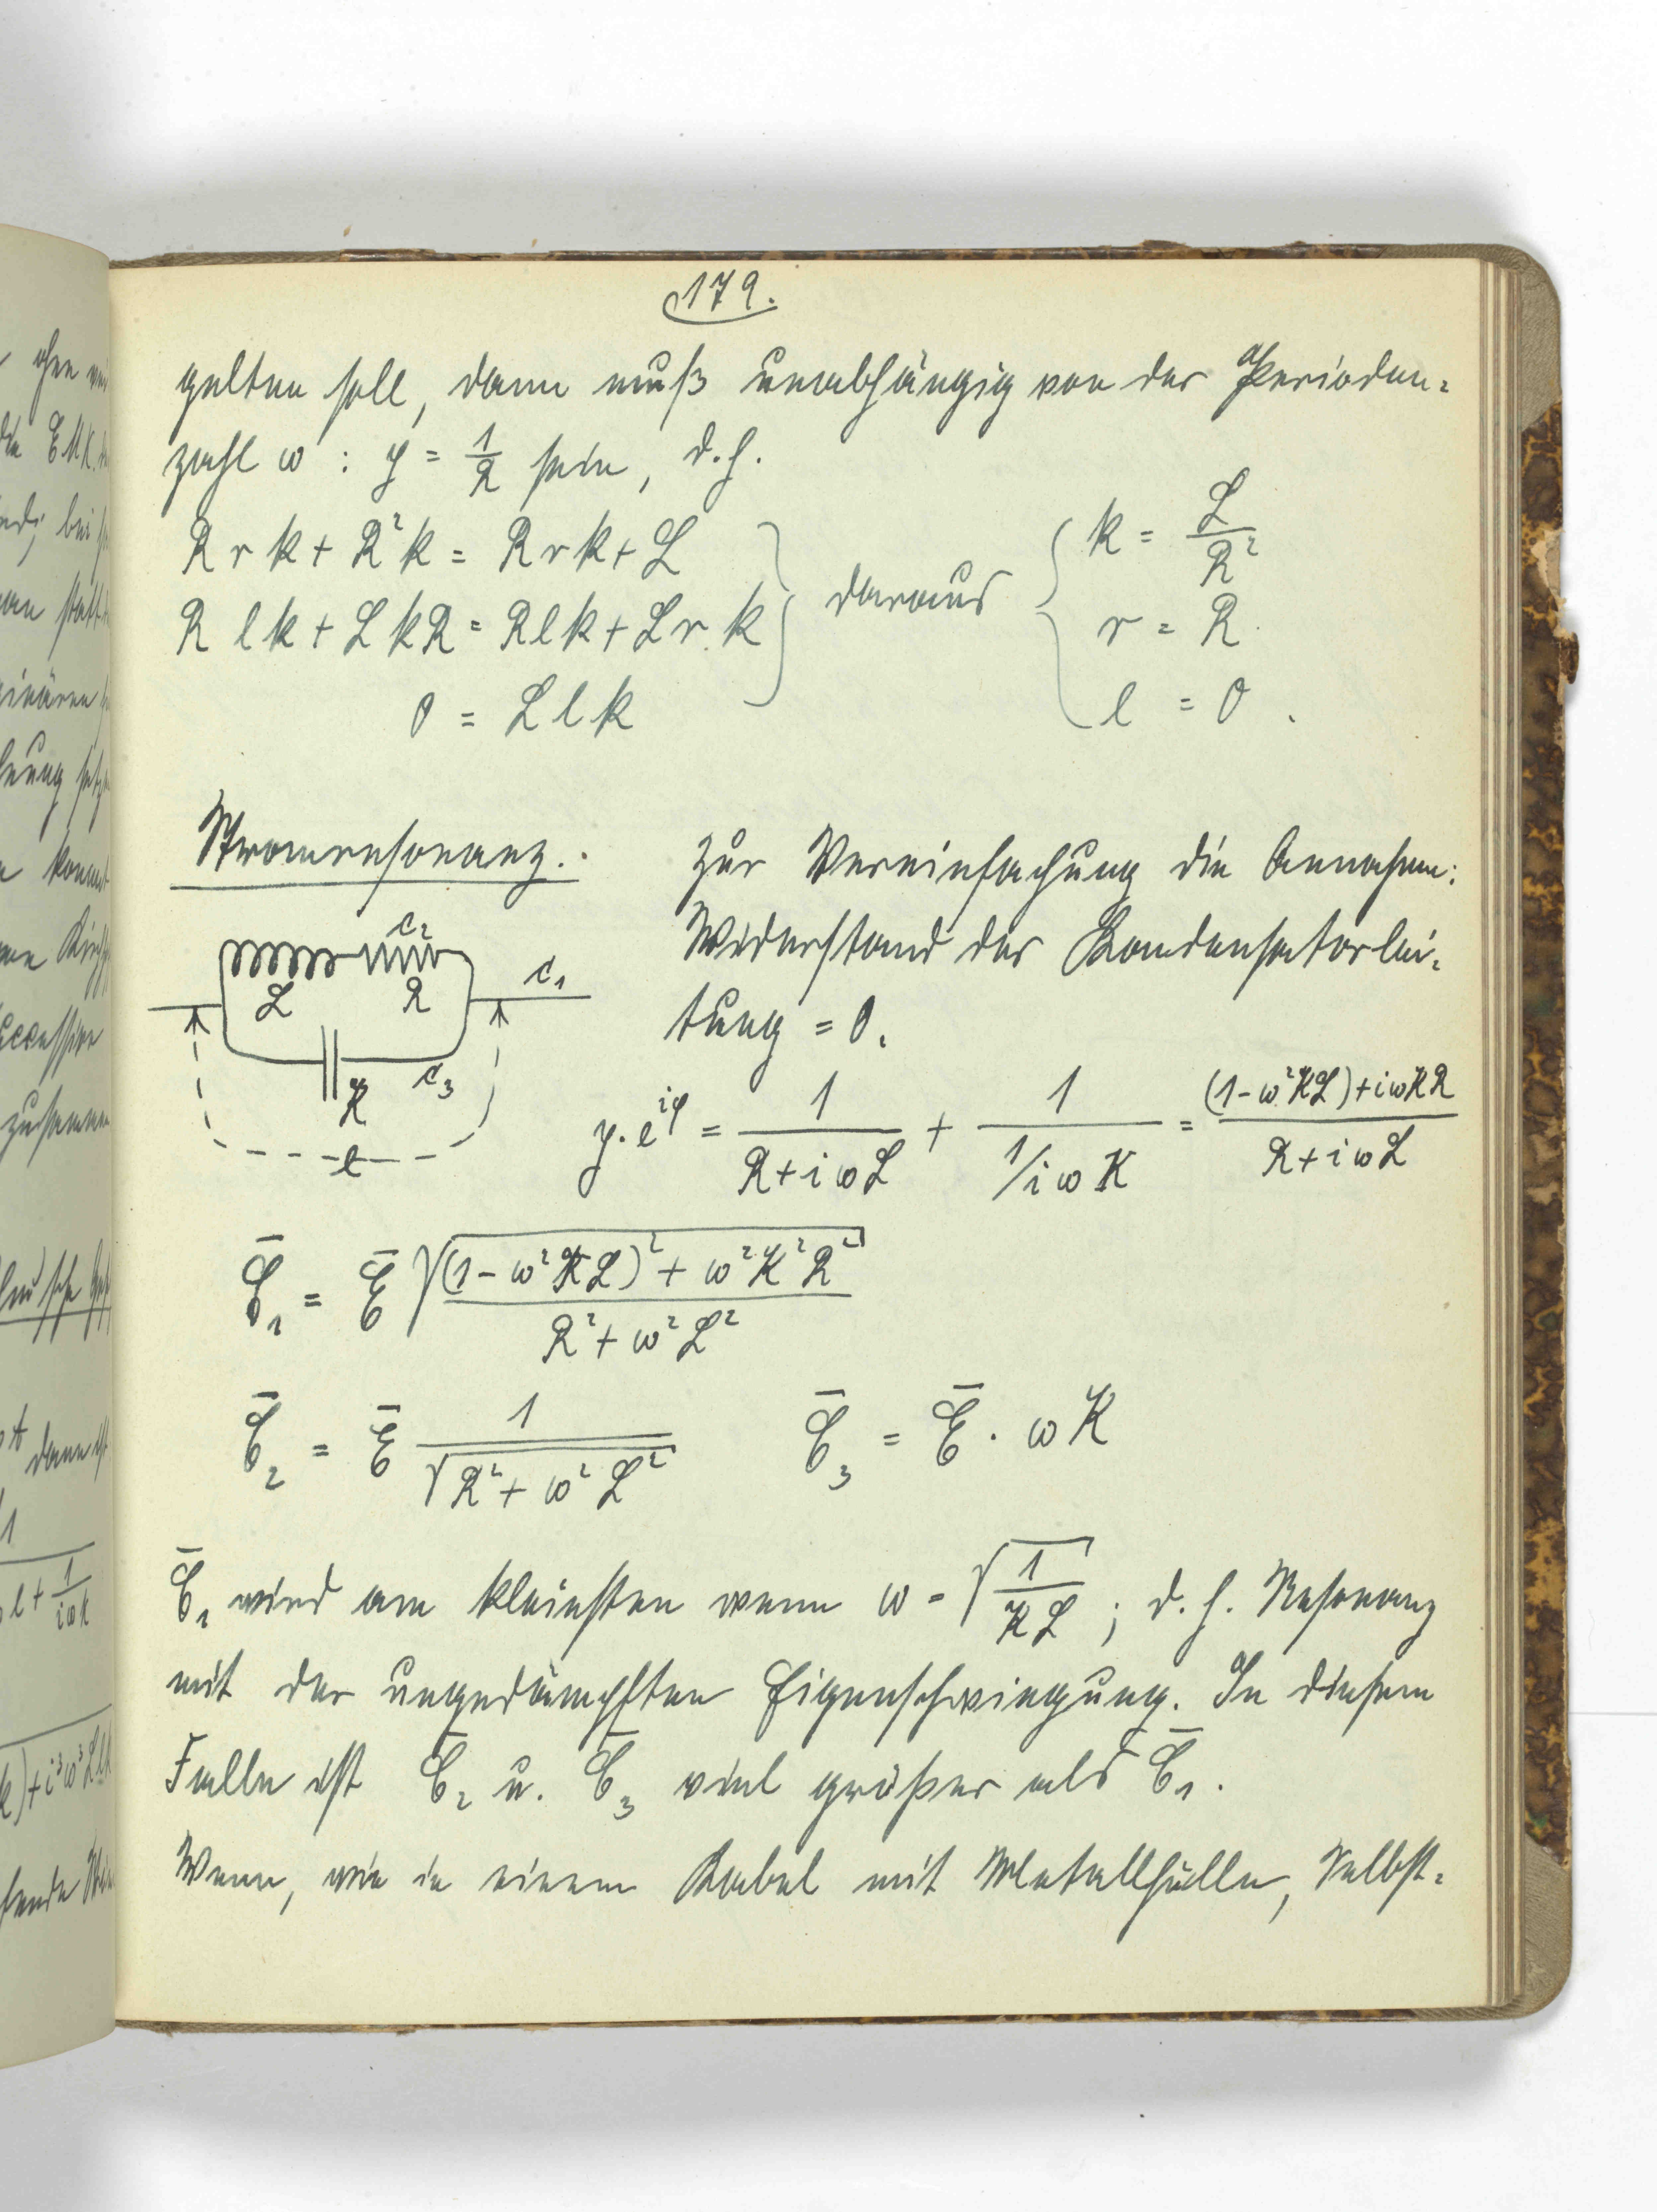 179.
gelten soll, dann muß unabhängig von der Perioden-
zahl ω : y = 1/R sein, d.h.
R r k + R²k = R r k + L
R l k + L k R = R l k + L r . k
0 = L l k
daraus
k = L/R²
r = R.
l = 0.
Stromresonanz.
Zur Vereinfachung die Annahme:
Widerstand der Kondensatorlei-
tung = 0.
c₂
L R c₁
K c₃
e
y · e^{iφ} = 1/(R + iωL) + 1/(1/iωK) = ((1 - ω²KL) + iωKR)/(R + iωL)
C̄₁ = Ē √(((1 - ω²KL)² + ω²K²R²)/(R² + ω²L²))
C̄₂ = Ē 1/√(R² + ω²L²) C̄₃ = Ē · ωK
C̄₁ wird am kleinsten wenn ω = √(1/KL) ; d. h. Resonanz
mit der ungedämpften Eigenschwingung. In diesem
Falle ist C̄₂ u. C̄₃ viel größer als C̄₁.
Wenn, wie in einem Kabel mit Metallhülle, Selbst-